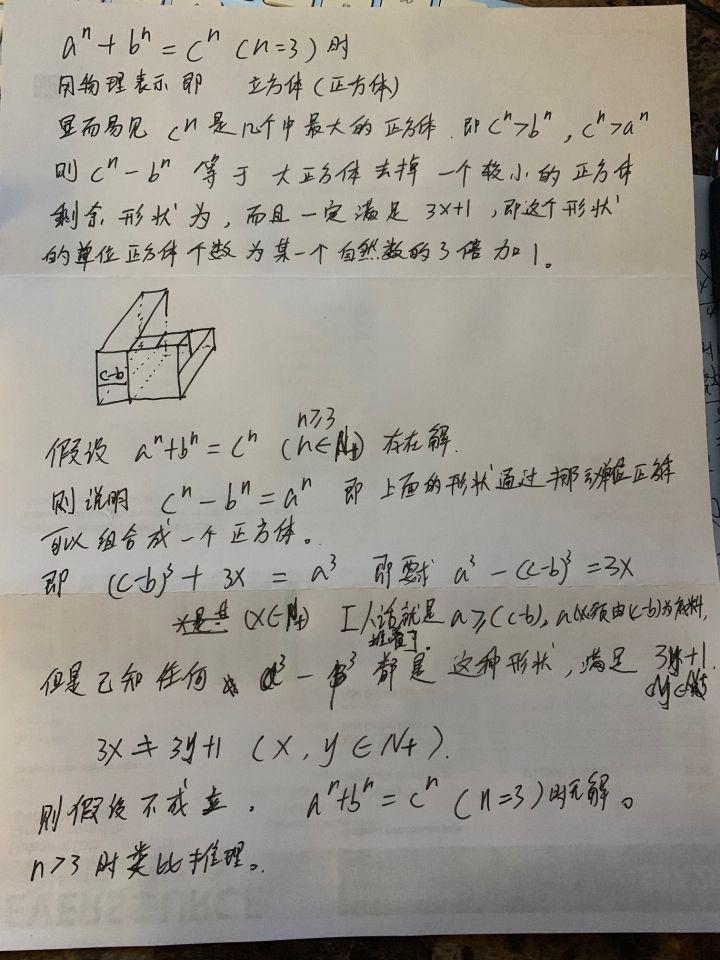 aⁿ + bⁿ = cⁿ (n=3) 时
用物理表示即 立方体(正方体)
显而易见 cⁿ是几个中最大的正方体. 即 cⁿ>bⁿ, cⁿ>aⁿ
则 cⁿ-bⁿ 等于 大正方体去掉 一个较小的正方体
剩余形状为, 而且一定满足 3x+1, 即这个形状
的单位正方体个数为某一个自然数的3倍加1。
c-b
n≥3
假设 aⁿ+bⁿ=cⁿ (n∈N₊) 存在解.
则说明 cⁿ-bⁿ=aⁿ 即 上面的形状通过挪动单位正方体
可以组合成一个正方体。
即 (c-b)³ + 3x = a³ 即要求 a³-(c-b)³=3x
(x∈N₊) 工人话就是 a≥(c-b), a必须由(c-b)为底料,
堆叠了.
但是已知任何 a³-b³ 都是 这种形状, 满足 3y+1.
(y∈N₊)
3x≠3y+1 (x, y∈N₊).
则假设不成立. aⁿ+bⁿ=cⁿ (n=3)时无解。
n>3 时类比推理。
EVERSOURCE